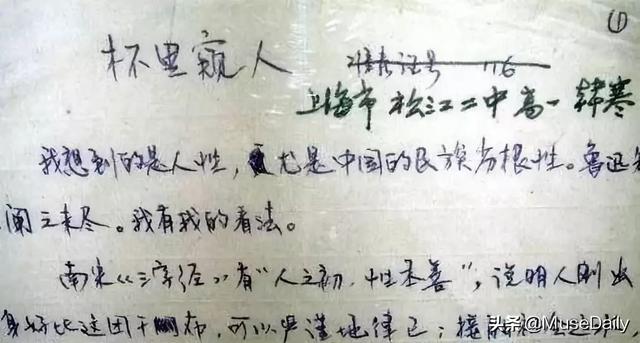 ①
杯里窥人
准考证号 116
上海市松江二中高一 韩寒
我想到的是人性,尤是中国的民族劣根性。鲁迅先
阐之未尽。我有我的看法。
南宋《三字经》有“人之初,性本善”,说明人刚出
身好比这团干布,可以严谨地律己;接触社会这水,
头条@MuseDaily